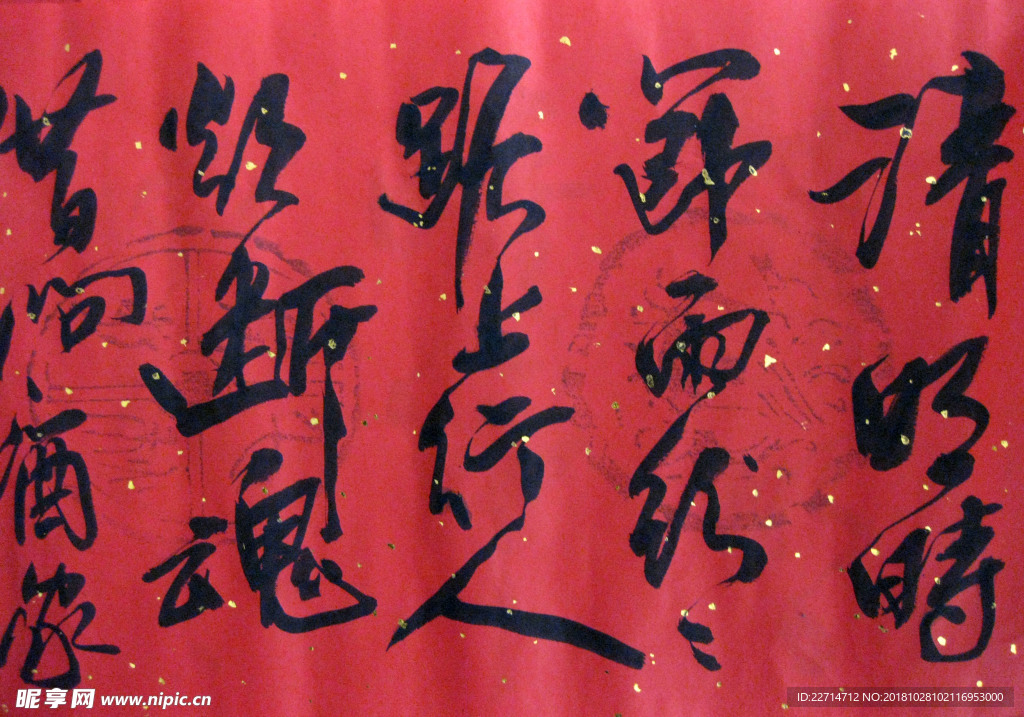 清明時
節雨紛〻
路上行人
欲断魂
借問酒家
昵享网 www.nipic.cn
ID:22714712 NO:20181028102116953000